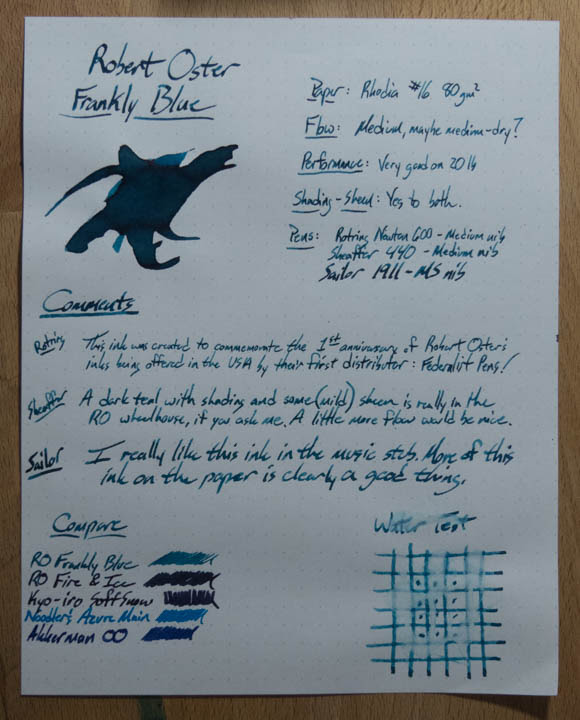 Robert Oster
Frankly Blue
Paper: Rhodia #16 80gm²
Flow: Medium, maybe medium-dry?
Performance: Very good on 2016
Shading-Sheen: Yes to both.
Pens: Rotring Newton 600 - Medium nib
Sheaffer 440 - Medium nib
Sailor 1911 - MS nib
Comments
Rotring This ink was created to commemorate the 1st anniversary of Robert Oster's
inks being offered in the USA by their first distributor: Federalist Pens!
Sheaffer A dark teal with shading and some (mild) sheen is really in the
RO wheelhouse, if you ask me. A little more flow would be nice.
Sailor I really like this ink in the music stub. More of this
ink on the paper is clearly a good thing.
Compare
RO Frankly Blue
RO Fire & Ice
Kyo-iro Soft Snow
Noodler's Azure Main
Akkerman
Water Test